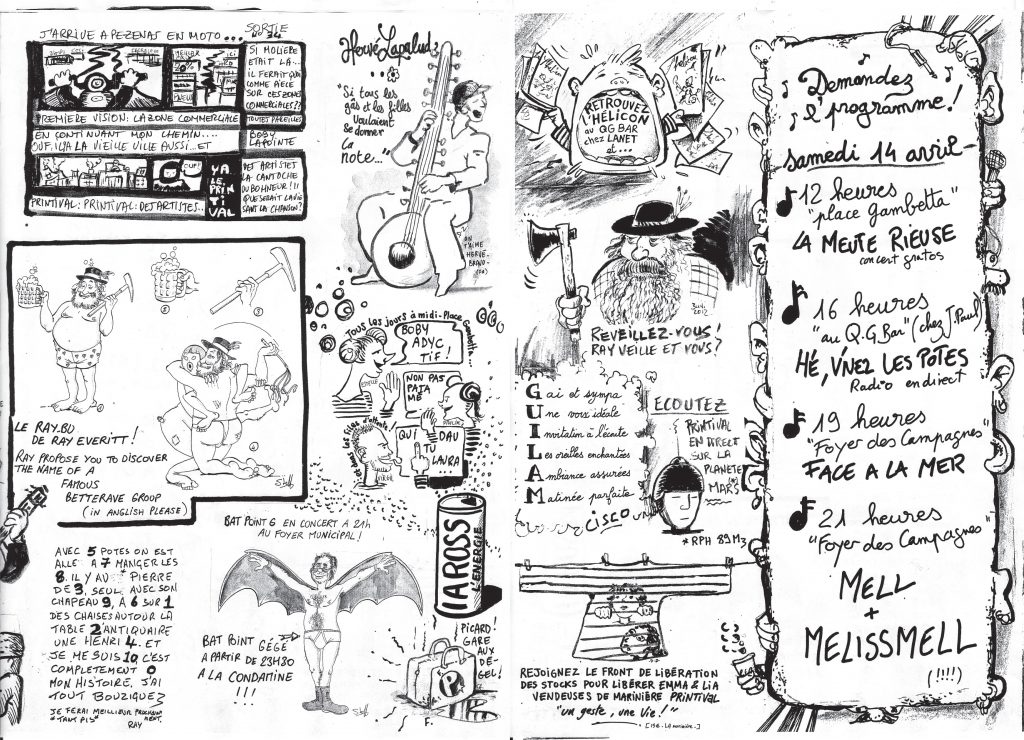 J'ARRIVE A PEZENAS EN MOTO...
SORTIE
N° 34
SI MOLIÈRE
ETAIT LA...
IL FERAIT QUOI
COMME PIÈCE
SUR CES ZONES
COMMERCIALES??
TOUTES PAREILLES
PREMIERE VISION: LA ZONE COMMERCIALE
EN CONTINUANT MON CHEMIN....
OUF. IL Y A LA VIEILLE VILLE AUSSI...ET
BOBY
LAPOINTE
OUF!
YA
LE PRIN
TI
VAL
DES ARTISTES
LA CANTOCHE
DU BONHEUR!!!
QUE SERAIT LA VIE
SANT LA CHANSON?
PRINTIVAL: PRINTIVAL: DES ARTISTES..
LE RAY.BU
DE RAY EVERITT!
RAY PROPOSE YOU TO DISCOVER
THE NAME OF A
FAMOUS
BETTERAVE GROUP
(IN ANGLISH PLEASE)
AVEC 5 POTES ON EST
ALLE A 7 MANGER LES
8. IL Y AV PIERRE
DE 3, SEUL AVEC SON
CHAPEAU 9, A 6 SUR 1
DES CHAISES AUTOUR LA
TABLE 2 ANTIQUAIRE
UNE HENRI 4. ET
JE ME SUIS 10, C'EST
COMPLETEMENT 0
MON HISTOIRE. J'AI
TOUT BOUZIQUEZ
JE FERAI MEILLIEUR PROCHAIN
"TANX PIS" NEXT.
RAY
Hervé Lapalud
"Si tous les
gâs et les filles
Voulaient
Se donner
La note..."
ON
T'AIME
HERVÉ
BRAVO
Tous les jours à midi-Place Gambetta..
BOBY
ADYC
TIF!
NON PAS
PAJA
MÉ
et dans les files d'attente!
QUI
DAU
TU
LAURA
BAT POINT G EN CONCERT A 21h
AU FOYER MUNICIPAL!
BAT POINT GÉGÉ
A PARTIR DE 23H30
A LA CONDAMINE
!!!
IAROSS
L'ENERGIE
PICARD!
GARE
AUX
DE-
GEL!
P
F.
RETROUVEZ
L'HÉLICON
au QG BAR
chez LANET
et...
2012
REVEILLEZ-VOUS!
RAY VEILLE ET VOUS?
Gai et sympa
Une voix idéale
Invitation à l'écoute
Les oreilles enchantées
Ambiance assurées
Matinée parfaite
CISCO
ECOUTEZ
PRINTIVAL
EN DIRECT
SUR LA
PLANETE
MARS
*RPH 89M3
REJOIGNEZ LE FRONT DE LIBÉRATION
DES STOCKS POUR LIBÉRER EMMA & LIA
VENDEUSES DE MARINIÈRE PRINTIVAL
"un geste, une Vie!"
[15€ - LA marinière.]
Demandez
l'programme!
samedi 14 avril-
12 heures
"place gambetta"
LA MEUTE RIEUSE
concert gratos
16 heures
"au Q.G Bar" (chez J. Paul)
HÉ, V'NEZ LES POTES
Radio en direct
19 heures
"Foyer des Campagnes"
FACE A LA MER
21 heures
"Foyer des Campagnes"
MELL
+
MELISSMELL
(!!!!)